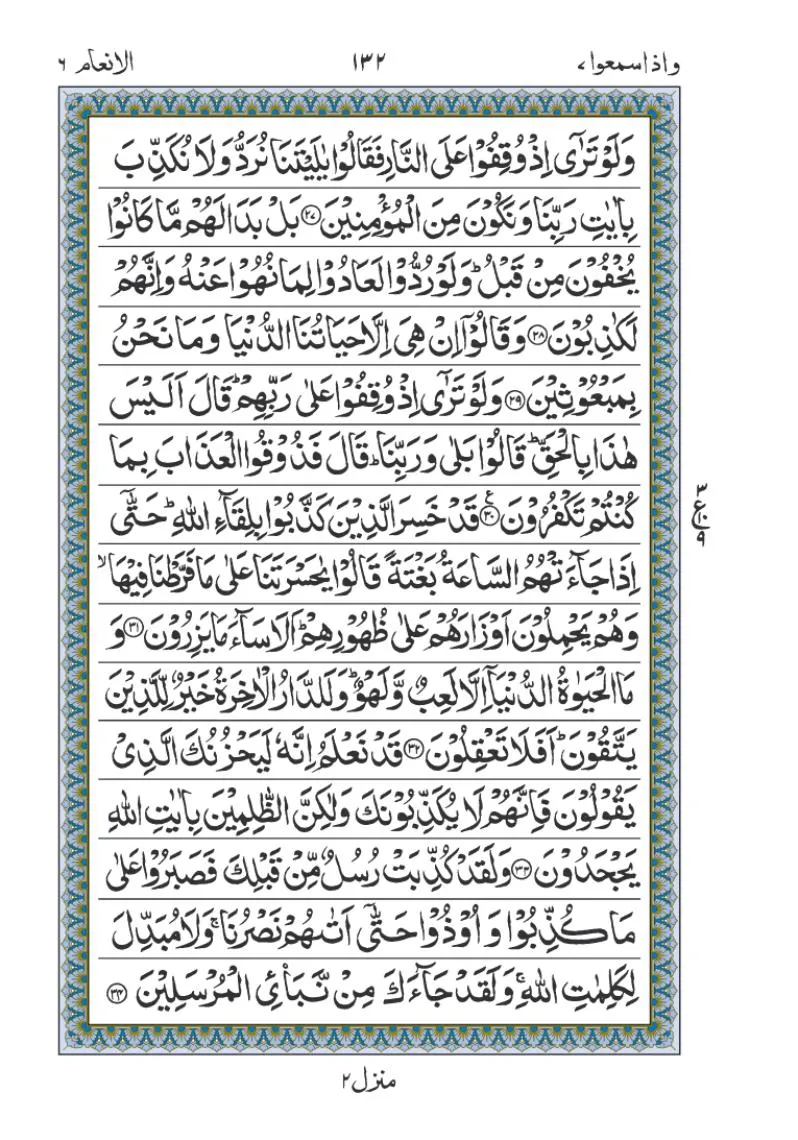 واذاسمعوا ۷ ۱۳۲ الانعام ۶
وَلَوْ تَرٰٓى اِذْ وُقِفُوْا عَلَى النَّارِ فَقَالُوْا يٰلَيْتَنَا نُرَدُّ وَلَا نُكَذِّبَ
بِاٰيٰتِ رَبِّنَا وَنَكُوْنَ مِنَ الْمُؤْمِنِيْنَ ۝۲۷ بَلْ بَدَا لَهُمْ مَّا كَانُوْا
يُخْفُوْنَ مِنْ قَبْلُ ؕ وَلَوْ رُدُّوْا لَعَادُوْا لِمَا نُهُوْا عَنْهُ وَاِنَّهُمْ
لَكٰذِبُوْنَ ۝۲۸ وَقَالُوْۤا اِنْ هِىَ اِلَّا حَيَاتُنَا الدُّنْيَا وَمَا نَحْنُ
بِمَبْعُوْثِيْنَ ۝۲۹ وَلَوْ تَرٰٓى اِذْ وُقِفُوْا عَلٰى رَبِّهِمْ ؕ قَالَ اَلَيْسَ
هٰذَا بِالْحَقِّ ؕ قَالُوْا بَلٰى وَرَبِّنَا ؕ قَالَ فَذُوْقُوا الْعَذَابَ بِمَا
كُنْتُمْ تَكْفُرُوْنَ ۝۳۰ ع قَدْ خَسِرَ الَّذِيْنَ كَذَّبُوْا بِلِقَآءِ اللّٰهِ ؕ حَتّٰٓى
اِذَا جَآءَتْهُمُ السَّاعَةُ بَغْتَةً قَالُوْا يٰحَسْرَتَنَا عَلٰى مَا فَرَّطْنَا فِيْهَا ۙ
وَهُمْ يَحْمِلُوْنَ اَوْزَارَهُمْ عَلٰى ظُهُوْرِهِمْ ؕ اَلَا سَآءَ مَا يَزِرُوْنَ ۝۳۱ وَ
مَا الْحَيٰوةُ الدُّنْيَاۤ اِلَّا لَعِبٌ وَّلَهْوٌ ؕ وَلَلدَّارُ الْاٰخِرَةُ خَيْرٌ لِّلَّذِيْنَ
يَتَّقُوْنَ ؕ اَفَلَا تَعْقِلُوْنَ ۝۳۲ قَدْ نَعْلَمُ اِنَّهٗ لَيَحْزُنُكَ الَّذِىْ
يَقُوْلُوْنَ فَاِنَّهُمْ لَا يُكَذِّبُوْنَكَ وَلٰكِنَّ الظّٰلِمِيْنَ بِاٰيٰتِ اللّٰهِ
يَجْحَدُوْنَ ۝۳۳ وَلَقَدْ كُذِّبَتْ رُسُلٌ مِّنْ قَبْلِكَ فَصَبَرُوْا عَلٰى
مَا كُذِّبُوْا وَاُوْذُوْا حَتّٰٓى اَتٰىهُمْ نَصْرُنَا ۚ وَلَا مُبَدِّلَ
لِكَلِمٰتِ اللّٰهِ ۚ وَلَقَدْ جَآءَكَ مِنْ نَّبَاِى الْمُرْسَلِيْنَ ۝۳۴
۳
ع ۱۰
۹
منزل ۲